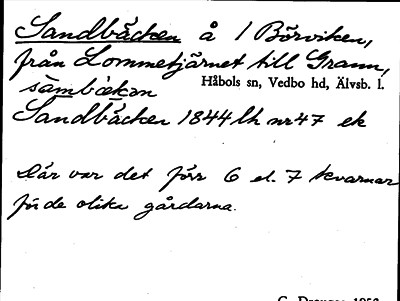 Sandbäcken å / Börviken,
från Lommetjärnet till Grann,
sàmbɛ̀kən Håbols sn, Vedbo hd, Älvsb. l.
Sandbäcken 1844 lk nr 47 ek
Där var det förr 6 el. 7 kvarnar
för de olika gårdarna.